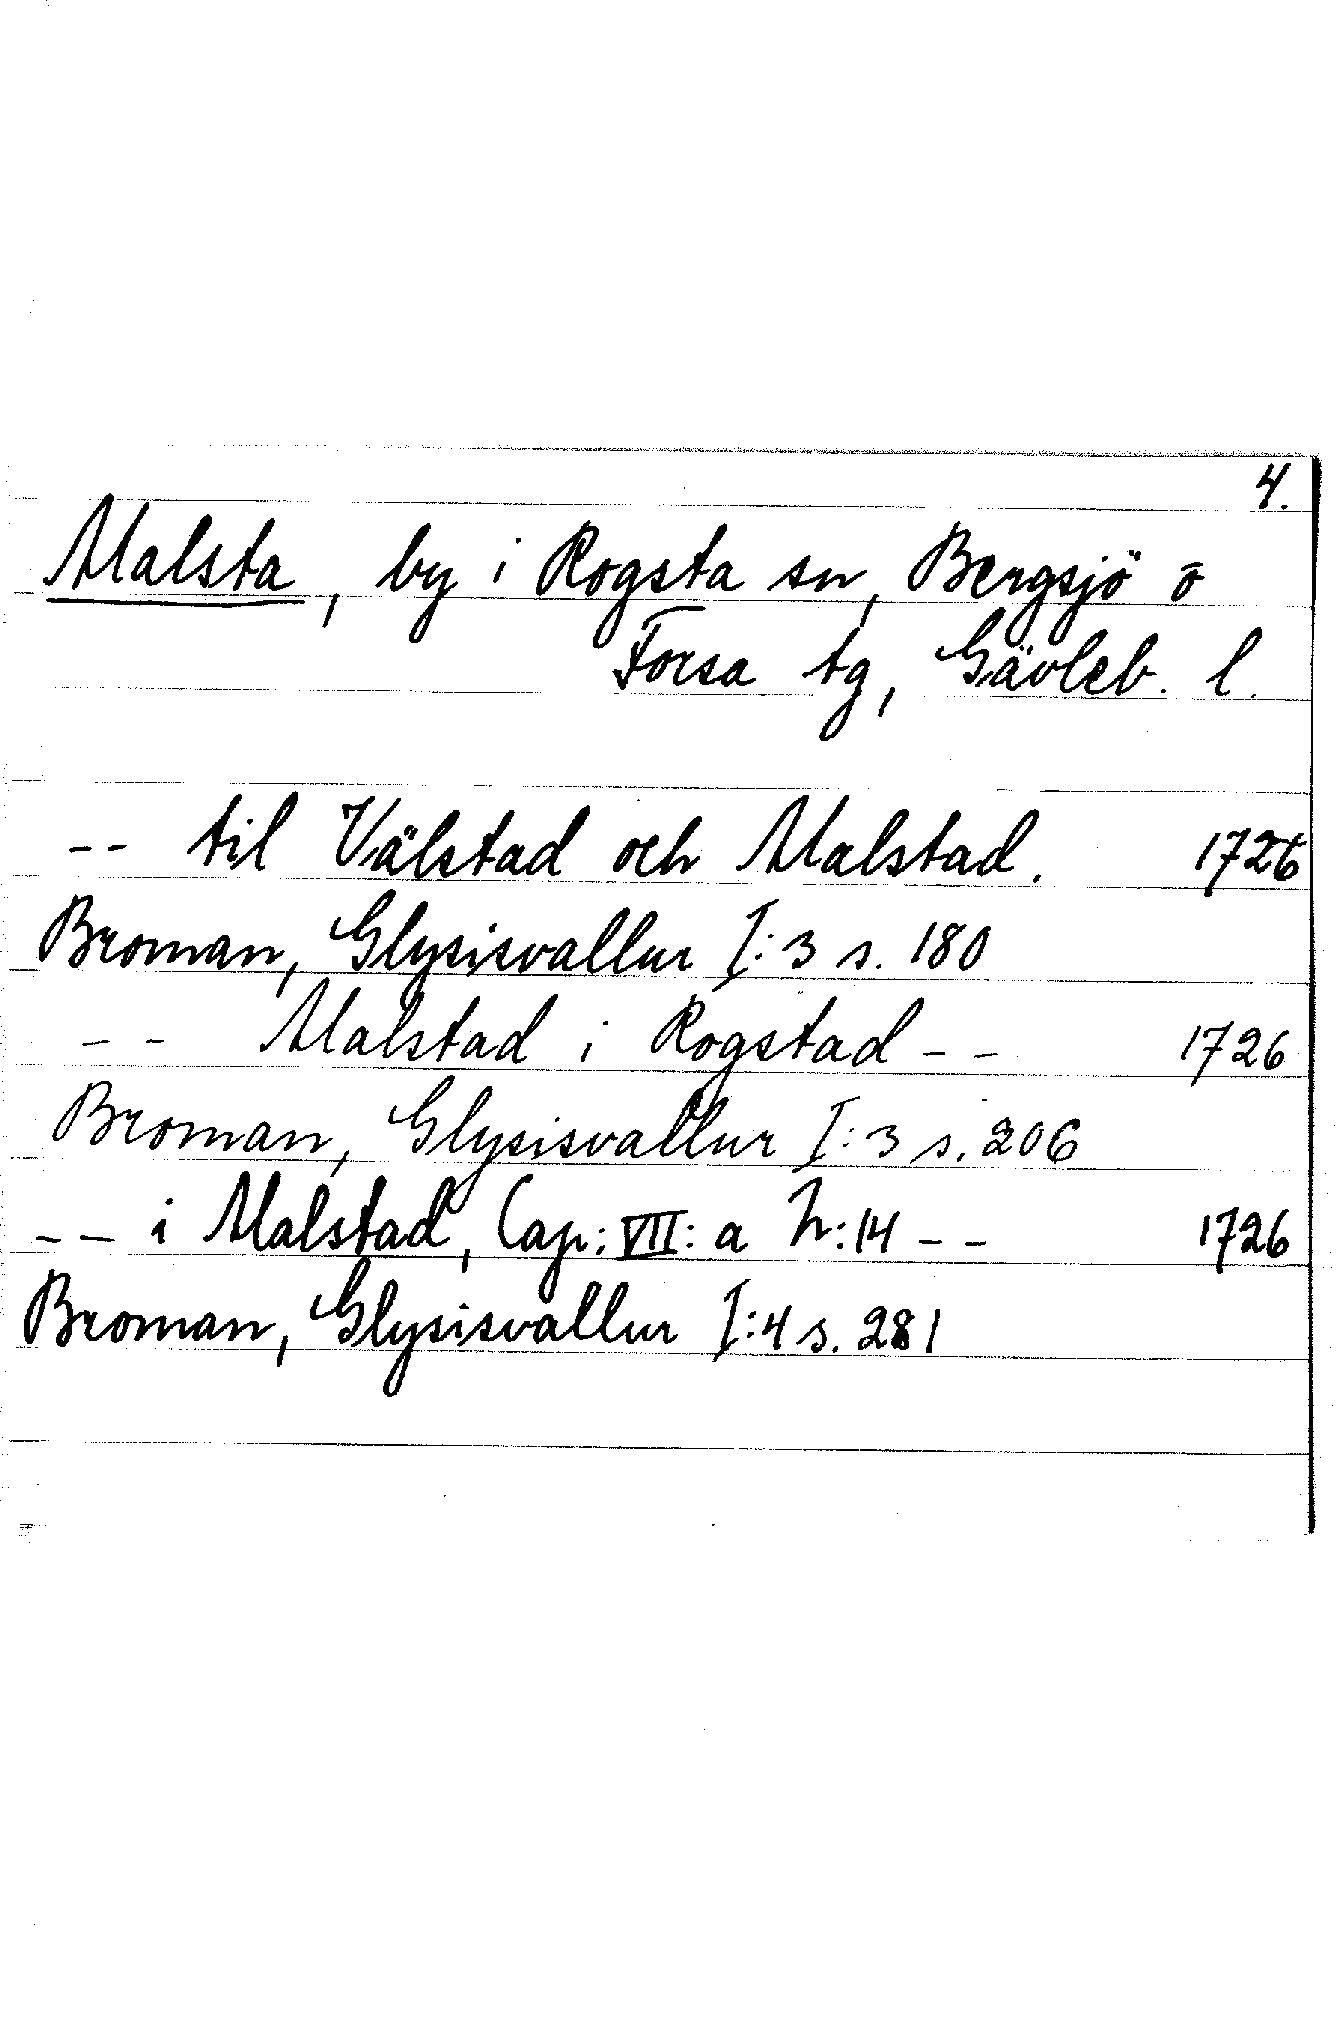 4.
Malsta, by i Rogsta sn, Bergsjö o
Forsa tg, Gävleb. l.
-- til Välstad och Malstad. 1726
Broman, Glysisvallur I:3 s. 180
-- Malstad i Rogstad -- 1726
Broman, Glysisvallur I:3 s. 206
-- i Malstad, Cap: VII: a N:14 -- 1726
Broman, Glysisvallur I:4 s. 281